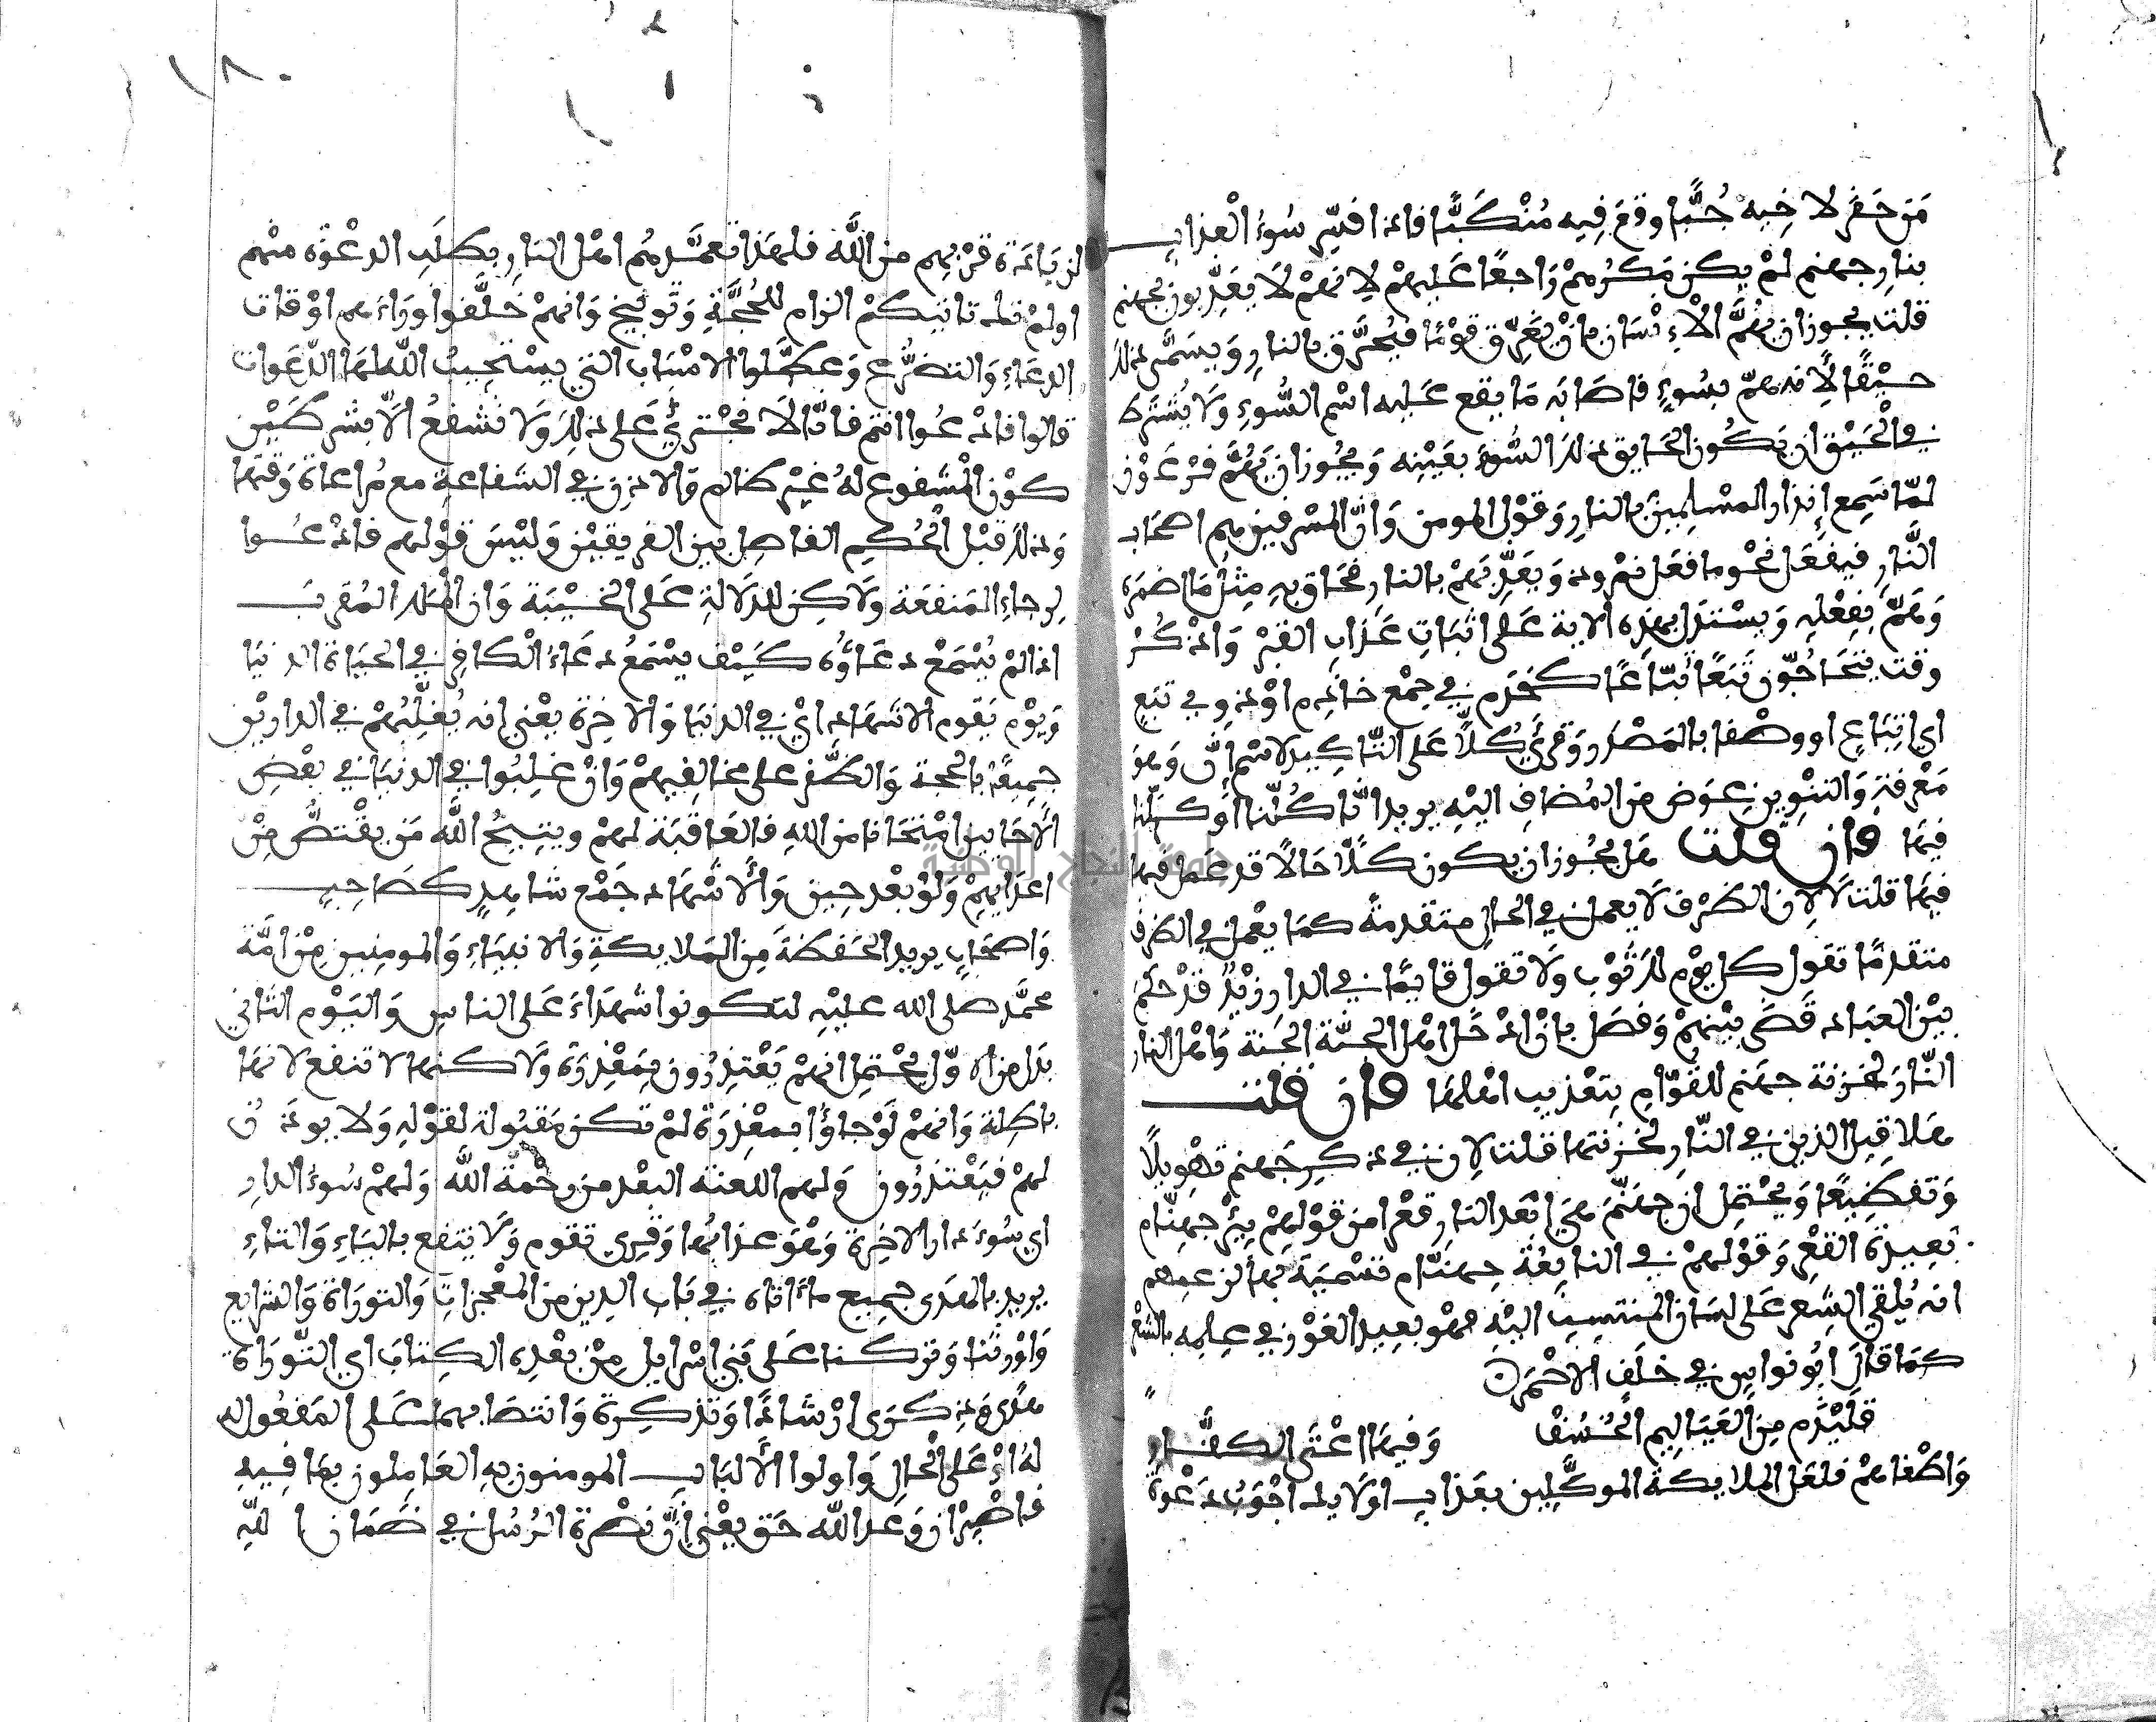 مَن حَفَرَ لاخِيه جُبًّا وقعَ فِيه مُنْكَبًّا فاذا فُسِّر سُوءُ الْعذابِ
بنارِ جهنم لمْ يكن مَكرُهمْ رَاجعًا عَليهمْ لِانهمْ لَا يُعَذَّبون بجهنم
قلت يجوز ان يَهُمَّ الْإِنْسَان بانْ يُغَرِّق قوْمًا فيُحرَّق بالنارِ وَيسَمَّى ذلك
حيْقًا لِأنه همّ بسُوءٍ فاصَابَه مَا يقع عَليه اسْم السُّوءِ وَلَا يُشترَط
في الْحَيْق ان يَكُون الحَايق ذلكَ السُّوءَ بعَيْنِه وَيجُوز ان يَهُمَّ فرْعَوْن
لمّا سَمِع إنذار المسْلِمينَ بالنارِ وَقَوْل المومن وَانَّ المسْرفين هم اصحَاب
النَّار فيفعَل نحْوما فعَل نمْروذ وَيعَذِّبَهمْ بالنارِ فحَاق بهِ مِثلُ مَا اضمَرَه
وَهَمَّ بِفِعْلِهِ وَيسْتدَلّ بهَذِه الاية عَلى اثبَاتِ عَذابِ القبْر وَاذْكُرْ
وقت يتحَاجُّون تَبَعًا تُبّاعًا كخَدَم في جمْع خادِم اوْ ذوِي تبَعٍ
اي اتِبَاعٍ او وصْفا بالمَصْدَر وَقرِيَ كُلاًّ عَلى التّاكيد لاسْم انَّ وَهوَ
مَعْرفة وَالتنْوين عِوَض مِن المُضافِ اليْهِ يريد انَّا كُلّنا اوْ كلّنا
فيهَا فان قلت هَل يجُوز ان يكون كلًّا حَالًا قد عَمِل فيها
فيهَا قلت لَا لِان الظرْف لَا يعمل في الحال متقدمةً كمَا يعْمل في الظرف
متقدمًا تقول كل يوْم لكَ ثوْب ولَا تقول قايمًا في الدار زيْدٌ قدْ حَكَمَ
بيْن العبَاد قَضَى بيْنهمْ وَفصَل بانْ ادْخَل اهْل الجنّة الجَنة وَاهْل النار
النّارَ لخزنة جهَنم للقُوّامِ بتَعْذيب اهْلهَا فان قلت
هَلا قِيل الذين في النّارِ لخزنتها قلت لِان في ذكر جَهنم تهْوِيلًا
وَتفظيعًا وَيحْتمِل ان جهَنّمَ هيَ ابْعد النار قعْرا من قوْلهِمْ بِئْر جهنّام
بَعيدَة القعْر وَقوْلهمْ في النابغة جهنَّام تسْميَة بها لزعمِهم
انه يُلقي الشِعر عَلى لسَان المنتسِب اليْه فهْو بعيد الغوْر في عِلمِه بالشعْر
كمَا قالَ ابُو نوَاس في خلَفٍ الاحْمَر
قَلَيْذَم مِن العَيَالِيم الْخُسُفْ وَفيهَا اعْتى الكفَّار
وَاطْغاهمْ فلعَل الملايكة الموكَّلين بعَذابِ اولَايك اجْوَبُ دَعْوةً
لزيَادَة قرْبهم من اللَّه فلهَذا تعمَّدهُم اهْل النارِ بطلَبِ الدعْوَة منْهم
اولمْ تك تاتيكمْ الزام للحُجَّةِ وَتوْبيخ وَانهمْ خلَّفوا وَرَاءَهم اوْقات
الدعَاءِ وَالتضَرُّع وَعطَّلوا الاسْبَاب التي يسْتجيبُ اللَّه لهَا الدَّعَوات
قالوا فادْعُوا انتم فانّا لَا نجْترِئُ عَلى ذلكَ وَلَا نشفعُ الّا بشرطيْن
كوْن المْشفوع لهُ غيْر ظالم وَالاذن في الشفاعةِ مع مُراعاة وَقتها
وَذلك قبْل الْحُكمِ الفاصِل بين الفريقيْن وَليْسَ قوْلهم فادْعُوا
لرجاءِ المَنفعَة ولَاكِن للدلَالةِ عَلى الخيْبَة وَان المْلك المُقربَ
اذا لمْ يُسْمَعْ دعَاؤُه كيْف يسْمَعُ دعَاءُ الْكافر في الحيَاة الدنيَا
وَيوْم يَقوم الاشهَاد ايْ في الدنيَا وَالاخِرَة يعْني انه يُغلِّبُهمْ في الداريْن
جمِيعًا بالحجة وَالظَّفر على مخالفِيهمْ وَانْ غلِبُوا في الدنيَا في بعْض
الْأحَايين امْتحَانا من اللهِ فالعَاقبَة لهمْ ويتِيحُ اللَّه مَن يقْتصُّ مِنْ
اعدَايهمْ وَلوْ بعْد حِين وَالْأشهَاد جَمْع شاهِدٍ كصَاحِبٍ
وَاصحَابٍ يريد الحَفظةَ مِن المَلايكةِ وَالانبيَاءِ وَالمومِنين مِنْ امَّة
محمَّد صلى الله عليْهِ لتكونوا شهَدَاءَ عَلى الناسِ وَاليَوْم الثاني
بدَل من الاوّل يحْتمِل انهمْ يَعْتذِرُون بمَعْذِرَة ولَاكنها لا تنفع لانهَا
باطِلة وَانهمْ لوْ جاؤُا بمعْذِرَة لمْ تكن مَقبُولة لقوْلهِ وَلا يوذَن
لهمْ فيَعْتذرُون وَلهم اللعْنة البعْد من رحْمة اللَّه وَلهمْ سُوءُ الدارِ
اي سُوءُ دار الاخِرَة وَهْوَ عذابُها وَقرِي تقوم وَلَا ينفع بالياءِ وَالتاءِ
يريد بالهدَى جميع ما ءَاتاه في بَابِ الدين من المعْجزاتِ وَالتورَاة وَالشرايع
وَاوْرثنا وَتركنا عَلى بَني اسْرايل مِنْ بعْدِه الكِتابَ اي التّورَاة
هدًى وَذكرَى ارْشادًا وَتذكِرة وَانتصَابهمَا عَلى المَفعُول
لهُ اوْ عَلى الْحال وَاولوا الْألبَابِ المومنون بهِ العَامِلون بمَا فِيهِ
فاصْبِرْ ان وَعْد اللَّه حَق يعْني انَّ نصْرَة الرُسُل في ضَمَان اللهِ